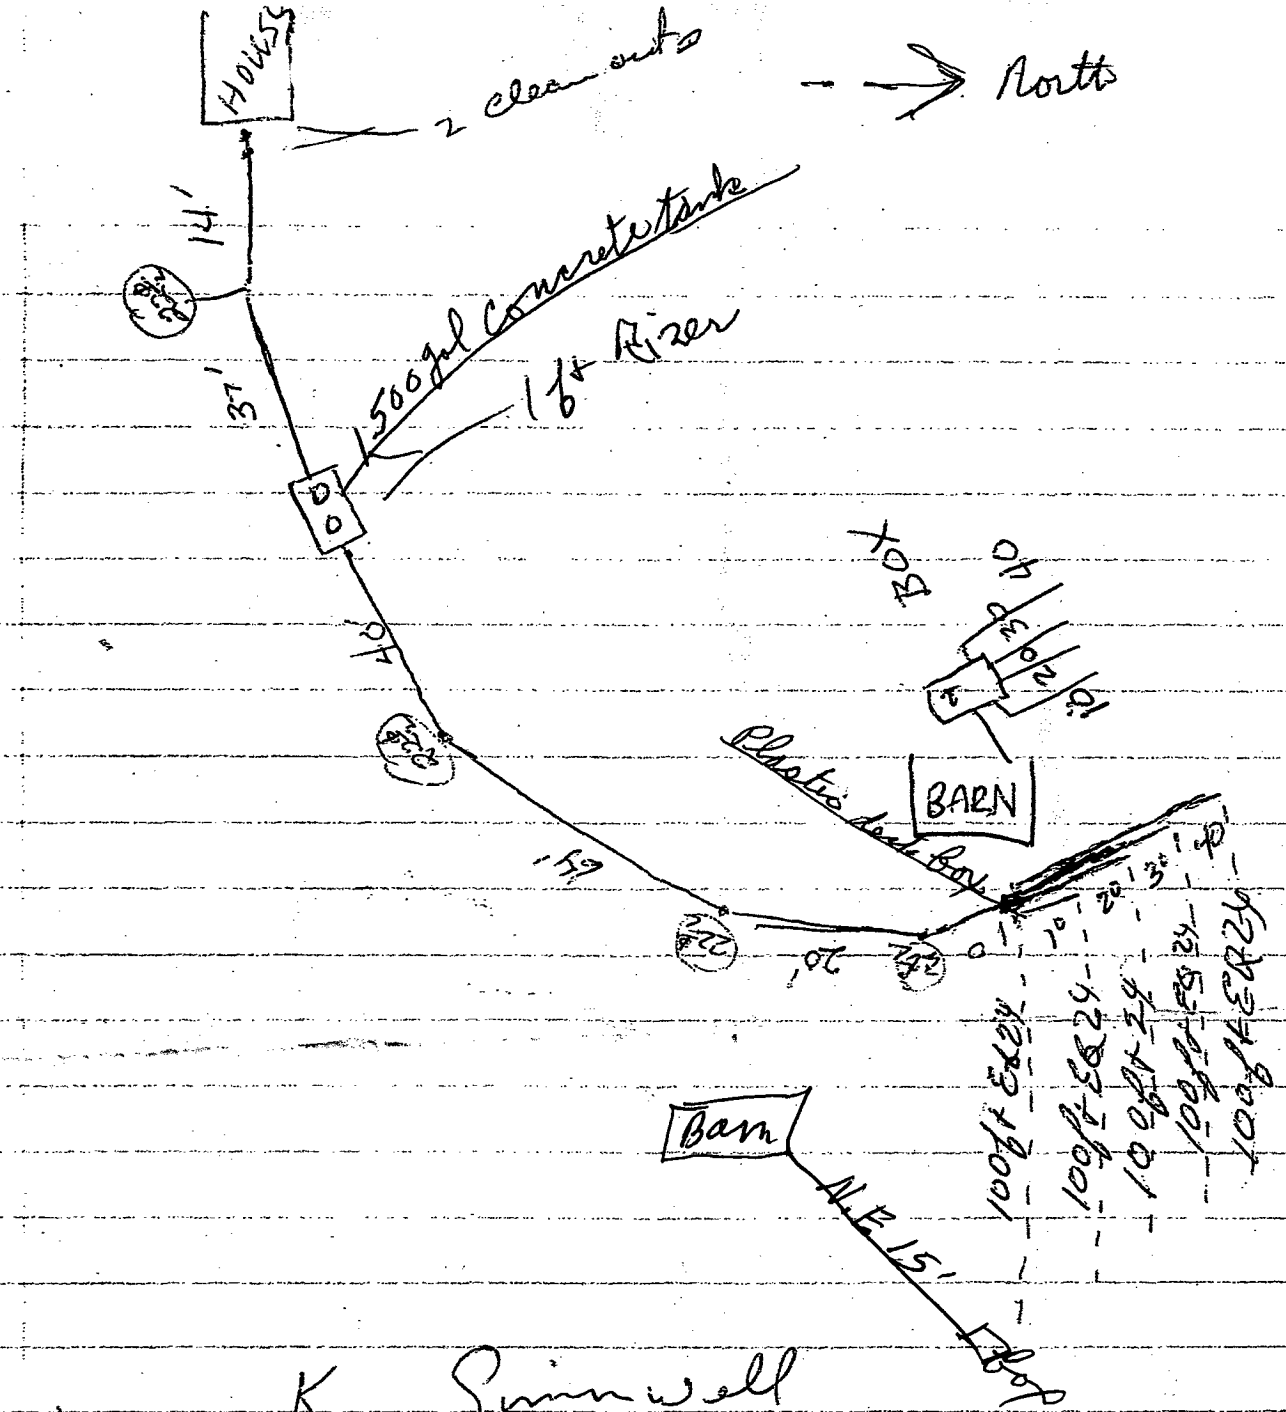 House
2 clean outs
North
14'
22½
37'
1500 gal Concrete tank
1 ft Rizer
40'
22½
BOX
40
30
20
10
BARN
Plastic deck Box
22½
20'
0
10
20
30
40'
100ft EQ24
100ft EQ24
100ft 24
100ft EQ24
100ft EQ24
Barn
N.E. 15'
Box
K